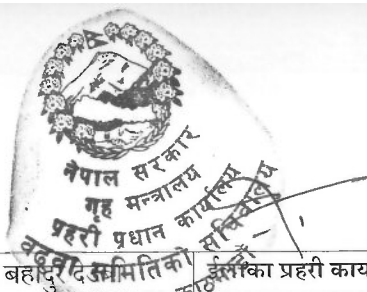 नेपाल सरकार
गृह मन्त्रालय
प्रहरी प्रधान कार्यालय
बढुवा समितिको सचिवालय
बहादुर देउवा
ईलाका प्रहरी काय